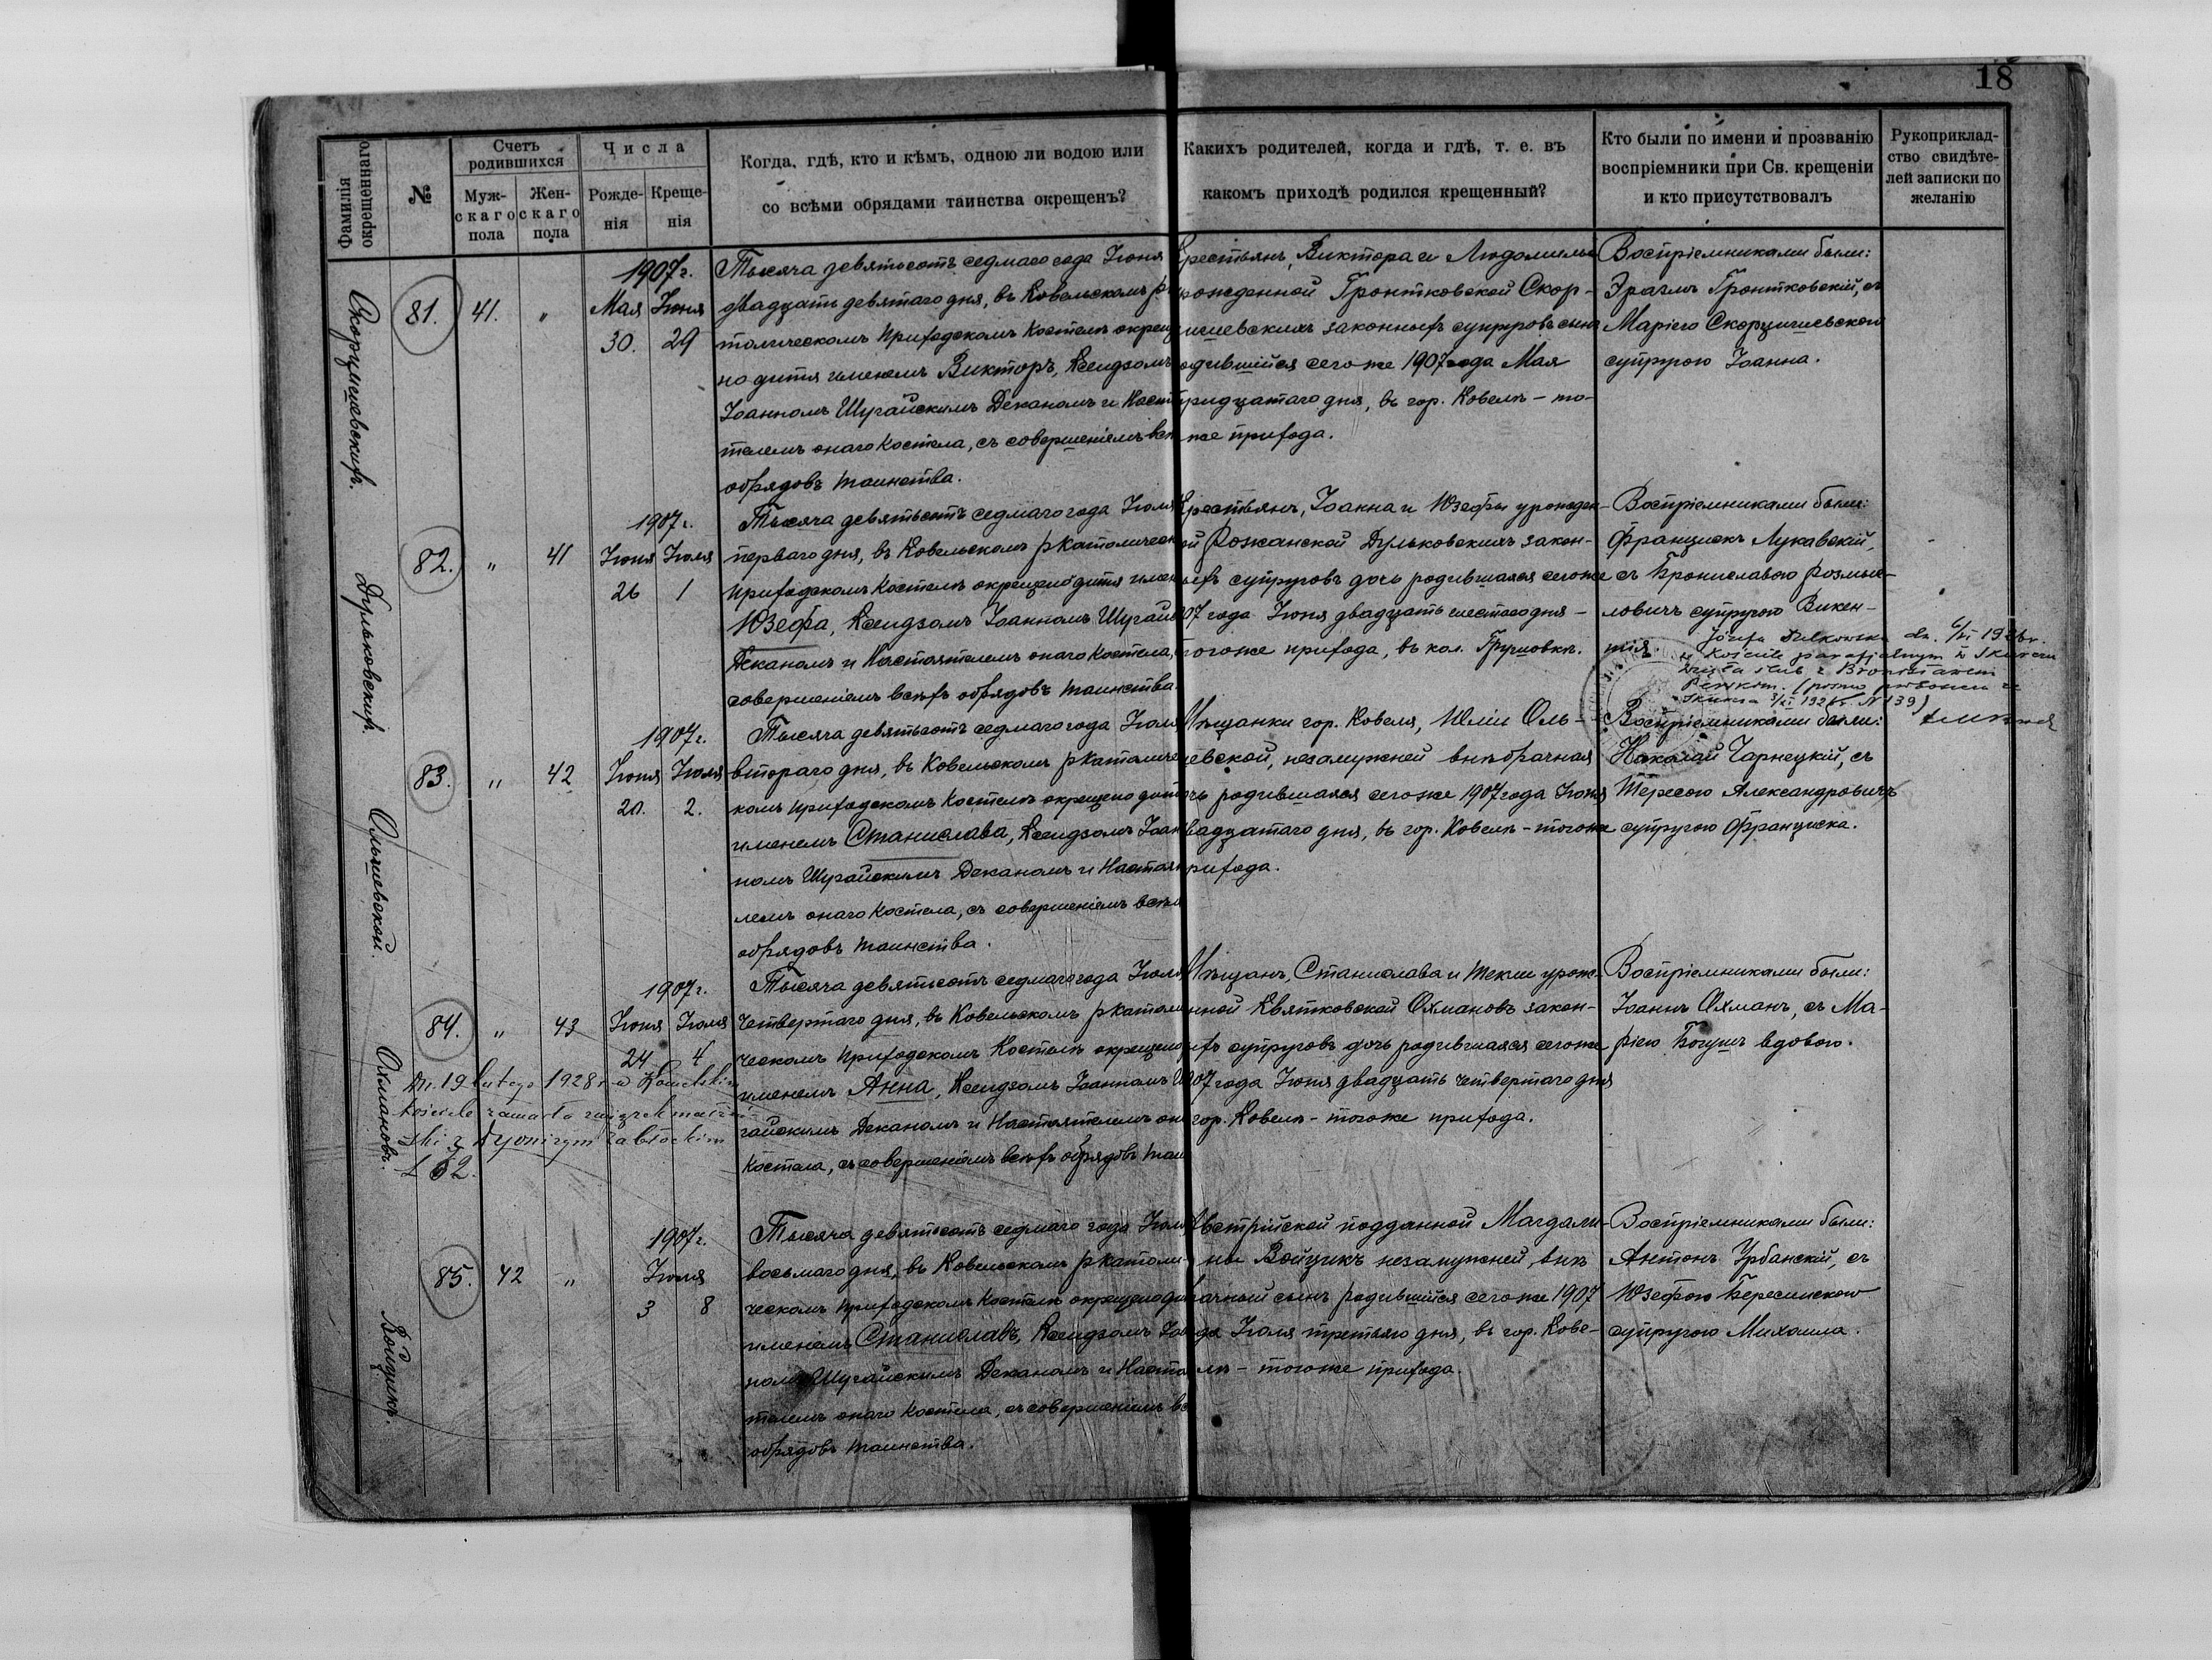 18
Фамилія окрещеннаго
№
Счетъ родившихся
Муж-скаго пола
Жен-скаго пола
Числа
Рожде-нія
Креще-нія
Когда, гдѣ, кто и кѣмъ, одною ли водою или
со всѣми обрядами таинства окрещенъ?
Какихъ родителей, когда и гдѣ, т. е. въ
какомъ приходѣ родился крещенный?
Кто были по имени и прозванію
воспріемники при Св. крещеніи
и кто присутствовалъ
Рукоприклад-
ство свидѣте-
лей записки по
желанію
81.
41.
"
1907 г.
Мая Іюня
30. 29
Тысяча девятьсотъ седмаго года Іюня
двадцать девятаго дня, въ Ковельскомъ р
толическомъ приходскомъ Костелѣ окрещ
но дитя именемъ Викторъ, Ксендзомъ
Іоанномъ Шугайскимъ Деканомъ и Наст
телемъ онаго Костела, съ совершеніемъ всѣ
обрядовъ таинства.
Крестьянъ, Виктора и Людомилы
рожденной Гронтковской Скор-
родившійся сего же 1907 года Мая
тридцатаго дня, въ гор. Ковелѣ – то-
же прихода.
Воспріемниками были:
Гронтковскій, съ
супругою Іоанна.
Дульковскихъ.
82.
"
41
1907 г.
Іюня Іюля
26 1
Тысяча девятьсотъ седмаго года Іюля
перваго дня, въ Ковельскомъ р Католическ
приходскомъ Костелѣ окрещено дитя имен
Юзефа, Ксендзомъ Іоанномъ Шугайс
Деканомъ и Настоятелемъ онаго Костела,
совершеніемъ всѣхъ обрядовъ таинства.
Крестьянъ, Іоанна и Юзефы урожден-
ой Рожанской Дульковскихъ закон-
ныхъ супруговъ дочь родившаяся сего же
07 года Іюня двадцать шестого дня –
тогоже прихода, въ кол.
Воспріемниками были:
Францискъ Лукавскій,
съ Брониславою Розмыс-
ловичъ супругою Викен-
тія
Józefa Dulkowska dn. 6/VI 1926 r.
w Kościele parafjalnym w
wzięła ślub z Bronisławem
1926 r. N 139)
Ольшевской.
83.
"
42
1907 г.
Іюня Іюля
20. 2.
Тысяча девятьсотъ седмаго года Іюля
второго дня, въ Ковельскомъ р Католиче
комъ приходскомъ Костелѣ окрещено дит
именемъ Станислава, Ксендзомъ Іоан
номъ Шугайскимъ Деканомъ и Настоят
лемъ онаго Костела, съ совершеніемъ всѣх
обрядовъ таинства.
Мѣщанки гор. Ковеля, Юліи Оль-
шевской, незамужней внѣбрачная
дочь родившаяся сегоже 1907 года Іюня
двадцатаго дня, въ гор. Ковелѣ – тогоже
прихода.
Воспріемниками были:
Николай Чарнецкій, съ
Тересою Александровичъ
супругою Франциска.
Охмановъ.
84.
"
43
1907 г.
Іюня Іюля
24 4
Dn. 19 lutego 1928 r w Kowelskim
kościele zawarła związek małżeń-
ski z Dyonizym Zabłockim
Тысяча девятьсотъ седмаго года Іюля
Четвертаго дня, въ Ковельскомъ р Католи
ческомъ приходскомъ Костелѣ окрещено
именемъ Анна, Ксендзомъ Іоанномъ Шу
гайскимъ Деканомъ и Настоятелемъ он
Костела, съ совершеніемъ всѣхъ обрядовъ таи
Мѣщанъ, Станислава и Текли урож-
нной Квятковской Охмановъ закон-
ныхъ супруговъ дочь родившаяся сегоже
07 года Іюня двадцать четвертаго дня
гор. Ковелѣ – тогоже прихода.
Воспріемниками были:
Іоаннъ Охманъ, съ Ма-
ріею Богушъ вдовою.
Войцикъ.
85.
42
"
1907 г.
Іюля
3 8
Тысяча девятьсотъ седмаго года Іюля
восьмаго дня, въ Ковельскомъ р Католи-
ческомъ приходскомъ Костелѣ окрещено ди
именемъ Станиславъ, Ксендзомъ Іоа
номъ Шугайскимъ Деканомъ и Насто
телемъ онаго Костела, съ совершеніемъ вс
обрядовъ таинства.
Австрійской подданной Магдали-
ны Войцикъ незамужней, внѣ
брачный сынъ родившійся сегоже 1907
года Іюля третьяго дня, въ гор. Кове-
лѣ – тогоже прихода.
Воспріемниками были:
Антонъ Урбанскій, съ
Юзефою Бересинскою
супругою Михаила.